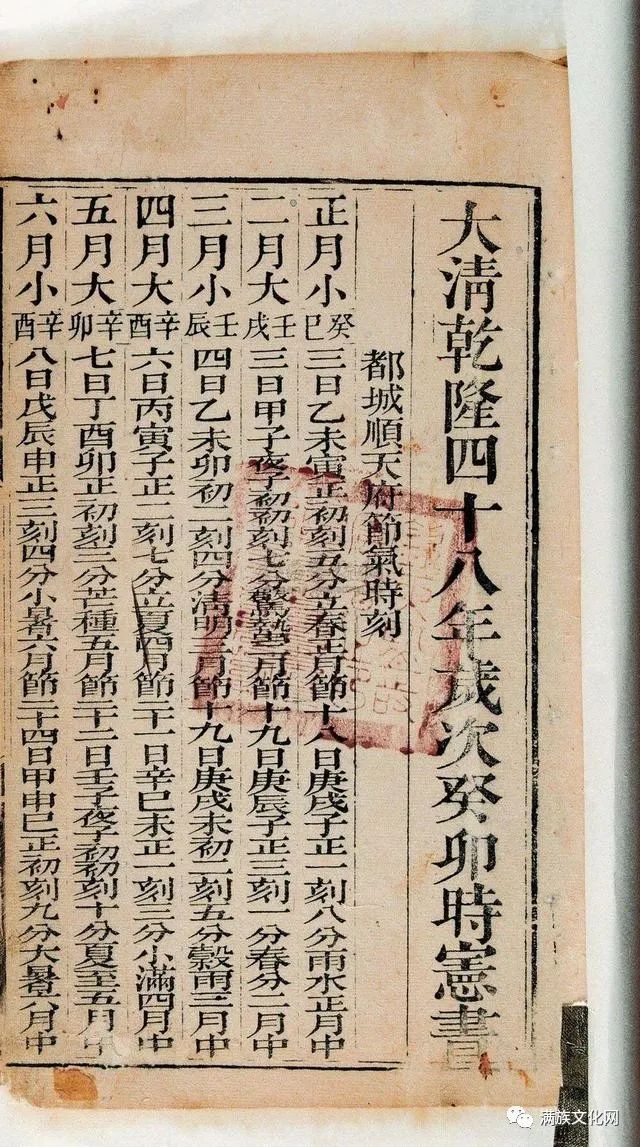 大清乾隆四十八年歲次癸卯時憲書
都城順天府節氣時刻
正月小 癸巳 三日乙未寅正初刻五分立春正月節 十八日庚戌子正一刻八分雨水正月中
二月大 壬戌 三日甲子夜子初初刻七分驚蟄二月節 十九日庚辰子正三刻一分春分二月中
三月小 壬辰 四日乙未卯初二刻四分清明三月節 十九日庚戌未初二刻五分穀雨三月中
四月大 辛酉 六日丙寅子正二刻七分立夏四月節 二十一日辛巳未正一刻三分小滿四月中
五月大 辛卯 七日丁酉卯正初刻三分芒種五月節 二十二日壬子夜子初初刻十分夏至五月中
六月小 辛酉 八日戊辰申正三刻四分小暑六月節 二十四日甲申巳正初刻九分大暑六月中
满族文化网